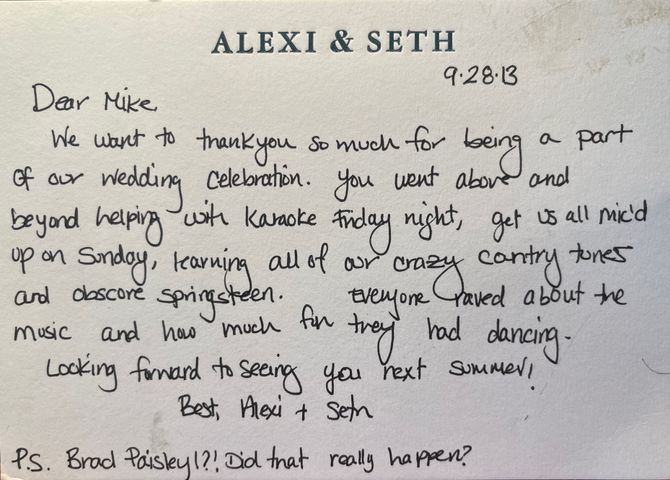 ALEXI & SETH
9.28.13
Dear Mike,
We want to thank you so much for being a part
of our wedding celebration. You went above and
beyond helping with Karaoke Friday night, get us all mic'd
up on Sunday, learning all of our crazy country tunes
and obscure Springsteen. Everyone raved about the
music and how much fun they had dancing.
Looking forward to seeing you next summer!
Best, Alexi + Seth
P.S. Brad Paisley!?! Did that really happen?